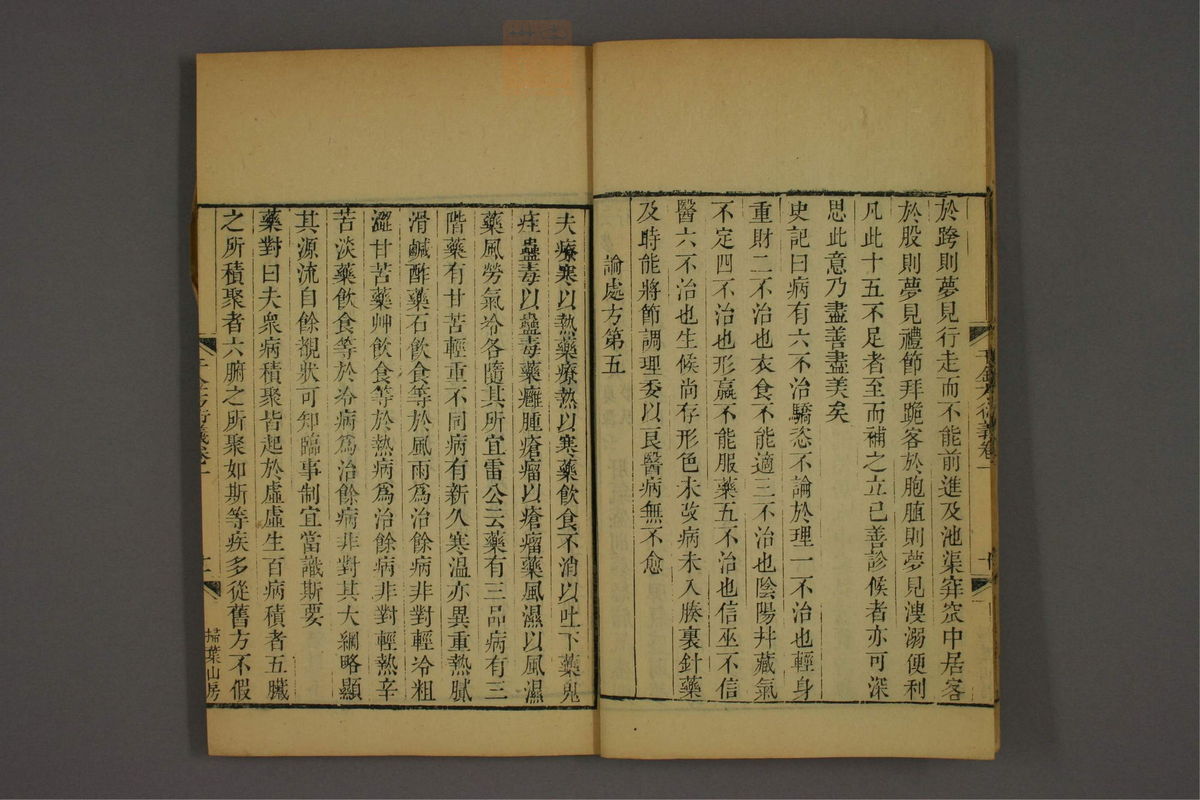 於跨則夢見行走而不能前進及池渠穽窌中居客
於股則夢見禮節拜跪客於胞脜則夢見溲溺便利
凡此十五不足者至而補之立已善診候者亦可深
思此意乃盡善盡美矣
史記曰病有六不治驕恣不論於理一不治也輕身
重財二不治也衣食不能適三不治也陰陽幷藏氣
不定四不治也形羸不能服藥五不治也信巫不信
醫六不治也生候尚存形色未改病未入腠裏針藥
及時能將節調理委以良醫病無不愈
論處方第五
夫療寒以熱藥療熱以寒藥飲食不消以吐下藥鬼
疰蠱毒以蠱毒藥癰腫瘡瘤以瘡瘤藥風濕以風濕
藥風勞氣冷各隨其所宜雷公云藥有三品病有三
階藥有甘苦輕重不同病有新久寒温亦異重熱膩
滑鹹酢藥石飲食等於風雨爲治餘病非對輕冷粗
澀甘苦藥艸飲食等於熱病爲治餘病非對輕熱辛
苦淡藥飲食等於冷病爲治餘病非對其大綱略顯
其源流自餘覩狀可知臨事制宜當識斯要
藥對曰夫衆病積聚皆起於虛虛生百病積者五臟
之所積聚者六腑之所聚如斯等疾多從舊方不假
千金方衍義卷一
掃葉山房